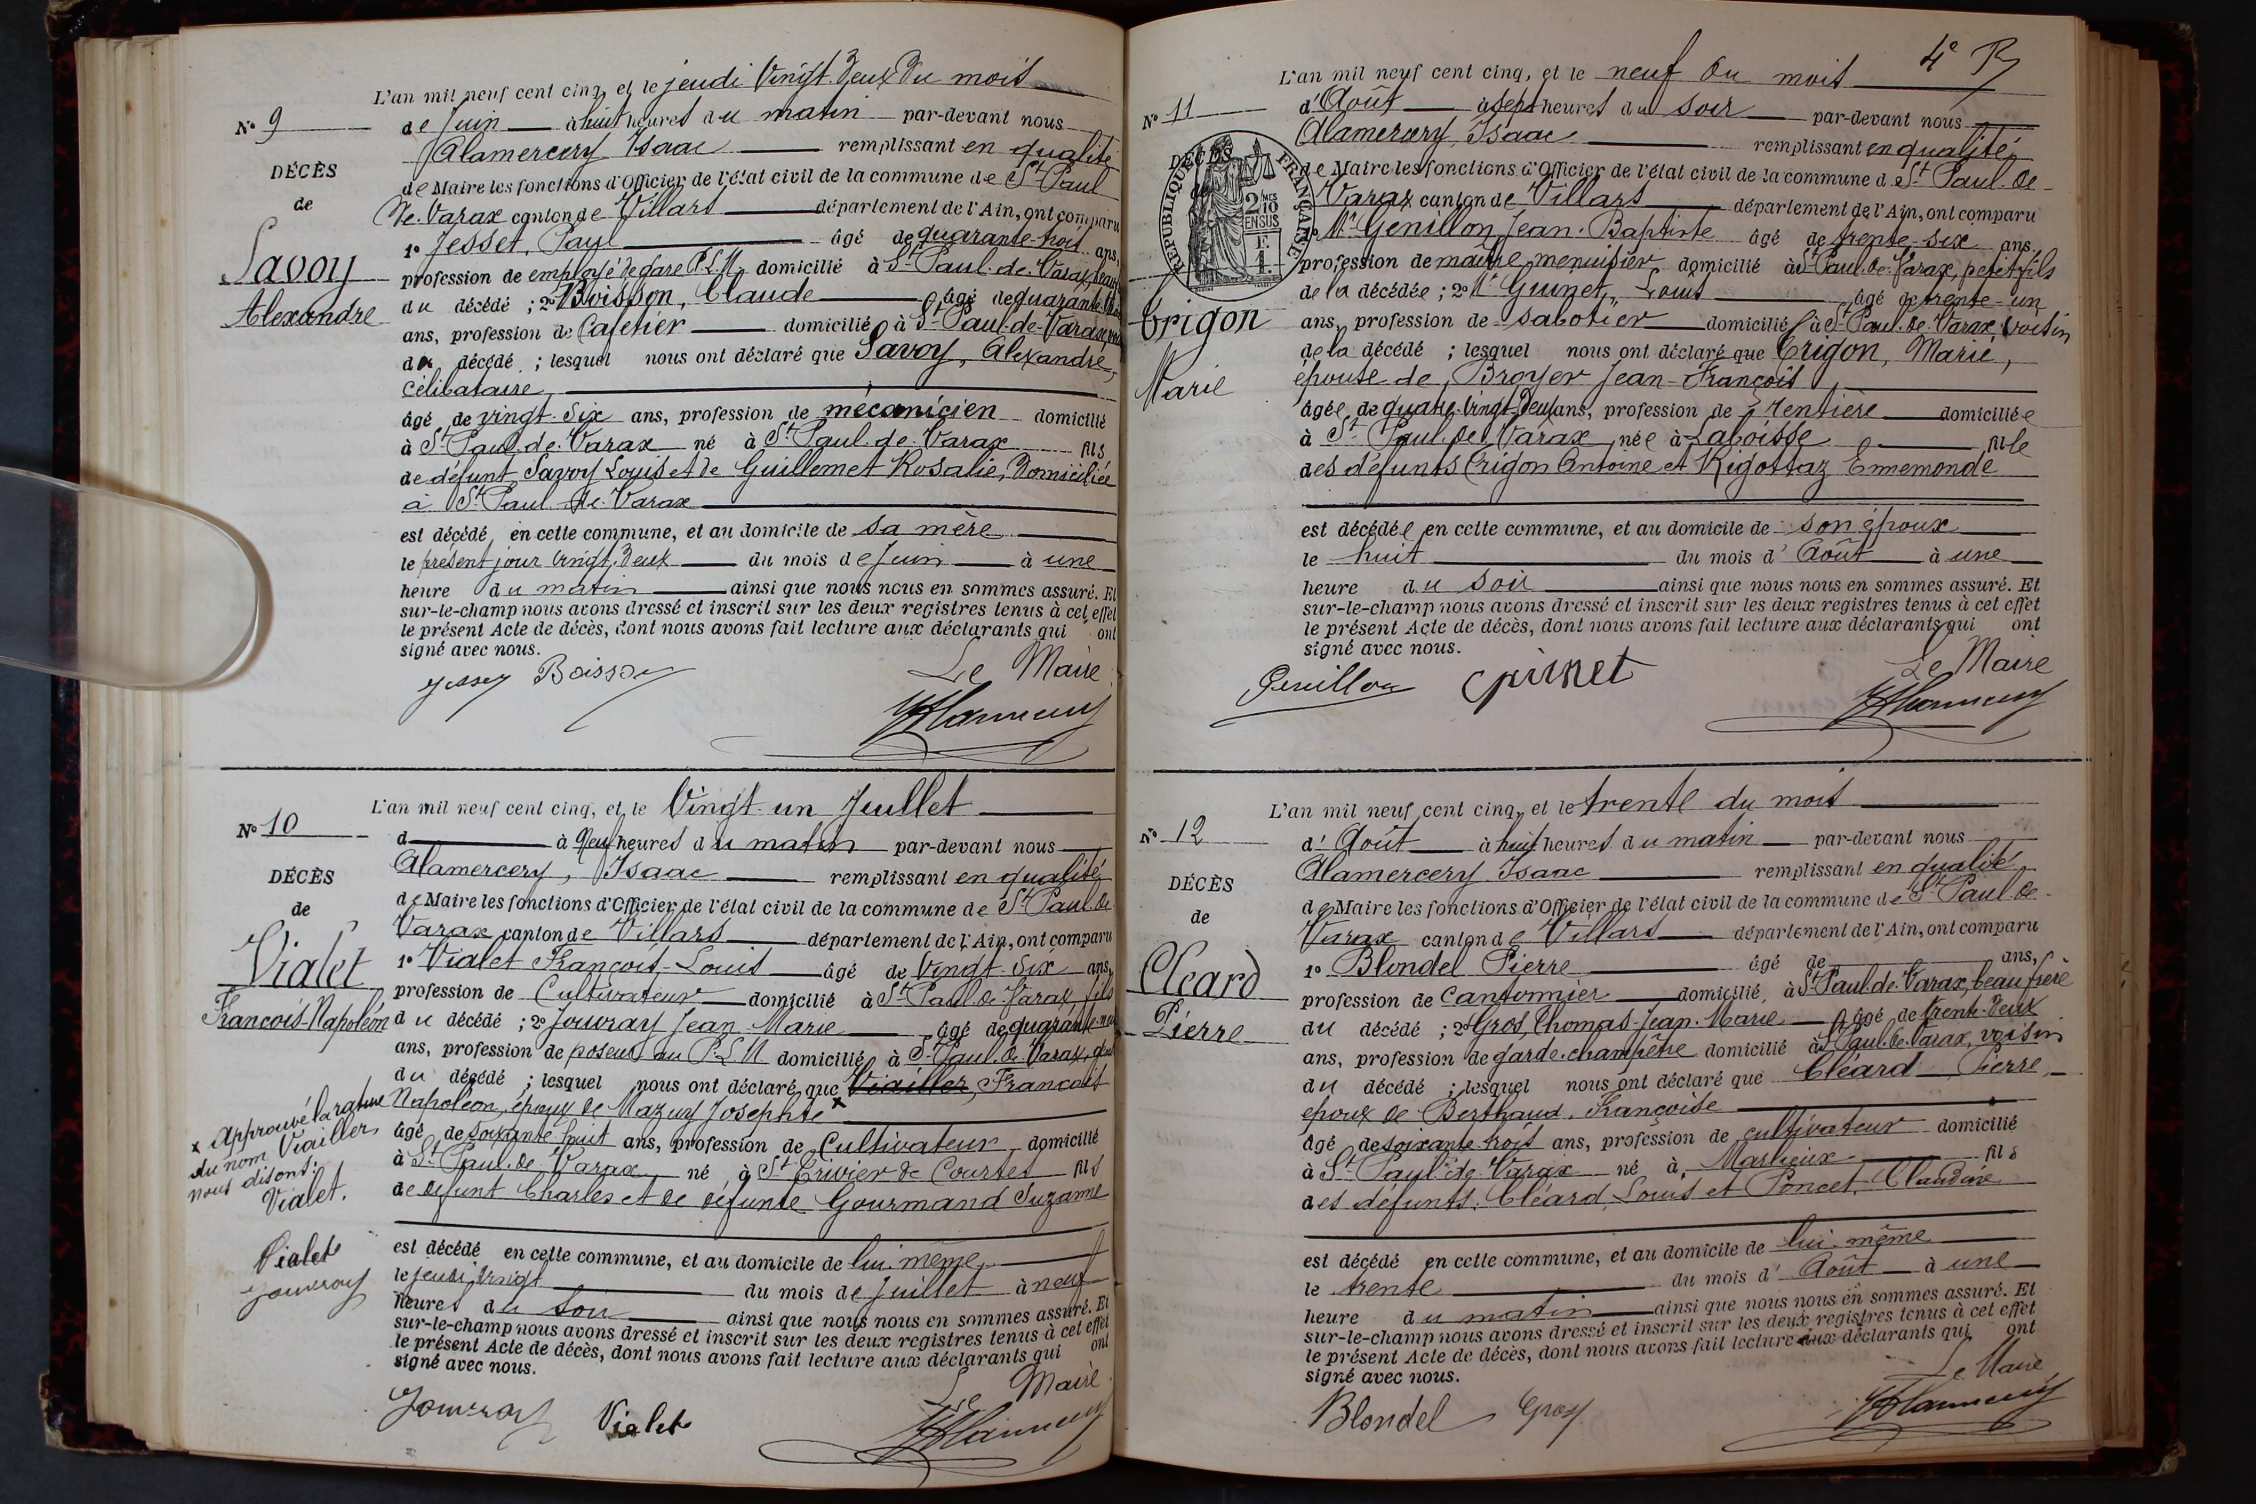 L'an mil neuf cent cinq, et le jeudi Vingt-Deux Du mois
N° 9
de Juin à huit heures du matin par-devant nous
Alamercery Isaac remplissant en qualité
DÉCÈS
de Maire les fonctions d'Officier de l'état civil de la commune de St Paul
de
De-Varax canton de Villars département de l'Ain, ont comparu
1° Jesset, Paul âgé de quarante-trois ans,
Savoy
profession de employé de gare P.L.M. domicilié à St Paul-de-Varax,
Alexandre
du décédé ; 2° Boisson, Claude âgé de quarante
ans, profession de Cafetier domicilié à St Paul-de-Varax
du décédé ; lesquel nous ont déclaré que Savoy, Alexandre,
Célibataire,
âgé de vingt-six ans, profession de mécanicien domicilié
à St Paul-de-Varax né à St Paul-de-Varax fils
de défunt Savoy Louis et de Guillemet Rosalie, Domiciliée
à St Paul-de-Varax
est décédé, en cette commune, et au domicile de sa mère
le présent jour vingt-Deux du mois de Juin à une
heure du matin ainsi que nous nous en sommes assuré. Et
sur-le-champ nous avons dressé et inscrit sur les deux registres tenus à cet effet
le présent Acte de décès, dont nous avons fait lecture aux déclarants qui ont
signé avec nous.
Boisson Le Maire
L'an mil neuf cent cinq, et le Vingt-un Juillet
N° 10
d à Neuf heures du matin par-devant nous
Alamercery, Isaac remplissant en qualité
DÉCÈS
de Maire les fonctions d'Officier de l'état civil de la commune de St Paul-de
de
Varax canton de Villars département de l'Ain, ont comparu
Vialet
1° Vialet François-Louis âgé de Vingt-Six ans,
profession de Cultivateur domicilié à St Paul-de-Varax, fils
François-Napoléon
du décédé ; 2° Jouvray Jean-Marie âgé de quarante-neuf
ans, profession de poseur au P.L.M domicilié à St Paul-de-Varax,
du décédé ; lesquel nous ont déclaré que Viailler, François
Napoléon, époux de Mazuy Josephte x
x Approuvé la rature
du nom Viailler
nous disons :
Vialet.
âgé de soixante-huit ans, profession de Cultivateur domicilié
à St Paul-de-Varax né à St Trivier de Courtes fils
de défunt Charles et de défunte Gourmand Suzanne
Vialet
Jouvray
est décédé en cette commune, et au domicile de lui-même,
le jeudi vingt du mois de Juillet à neuf
heures du soir ainsi que nous nous en sommes assuré. Et
sur-le-champ nous avons dressé et inscrit sur les deux registres tenus à cet effet
le présent Acte de décès, dont nous avons fait lecture aux déclarants qui ont
signé avec nous.
Le Maire
Jouvray Vialet
4e
L'an mil neuf cent cinq, et le neuf du mois
N° 11
d'Août à sept heures du soir par-devant nous
Alamercery, Isaac remplissant en qualité
DÉCÈS
RÉPUBLIQUE FRANÇAISE
2/10 MES
EN SUS
de Maire les fonctions d'Officier de l'état civil de la commune de St Paul-de-
Varax canton de Villars département de l'Ain, ont comparu
1° Mr Genillon, Jean-Baptiste âgé de trente-six ans,
profession de maître menuisier domicilié à St Paul-de-Varax, petit-fils
de la décédée ; 2° Mr Guinet, Louis âgé de trente-un
Trigon
ans, profession de sabotier domicilié à St Paul-de-Varax, voisin
Marie
de la décédé ; lesquel nous ont déclaré que Trigon, Marie,
épouse de Broyer Jean-François,
âgée de quatre-vingt-Deux ans, profession de rentière domiciliée
à St Paul de Varax née à Laboisse fille
des défunts Trigon Antoine et Rigottaz Ennemonde
est décédée en cette commune, et au domicile de son époux
le huit du mois d'Août à une
heure du soir ainsi que nous nous en sommes assuré. Et
sur-le-champ nous avons dressé et inscrit sur les deux registres tenus à cet effet
le présent Acte de décès, dont nous avons fait lecture aux déclarants qui ont
signé avec nous.
Le Maire
Genillon Guinet
L'an mil neuf cent cinq, et le trente du mois
N° 12
d'Août à huit heures du matin par-devant nous
Alamercery Isaac remplissant en qualité
DÉCÈS
de Maire les fonctions d'Officier de l'état civil de la commune de St Paul-de-
de
Varax canton de Villars département de l'Ain, ont comparu
Cléard
1° Blondel Pierre âgé de ans,
profession de Cantonnier domicilié à St Paul-de-Varax, beau frère
Pierre
du décédé ; 2° Gros, Thomas-Jean-Marie âgé de trente-Deux
ans, profession de garde-champêtre domicilié à St Paul-de-Varax, voisin
du décédé ; lesquel nous ont déclaré que Cléard Pierre,
époux de Berthaud, Françoise
âgé de soixante-trois ans, profession de cultivateur domicilié
à St Paul-de-Varax né à Marlieux fils
des défunts, Cléard, Louis et Poncet, Claudine
est décédé en cette commune, et au domicile de lui-même
le trente du mois d'Août à une
heure du matin ainsi que nous nous en sommes assuré. Et
sur-le-champ nous avons dressé et inscrit sur les deux registres tenus à cet effet
le présent Acte de décès, dont nous avons fait lecture aux déclarants qui ont
signé avec nous.
Le Maire
Blondel Gros